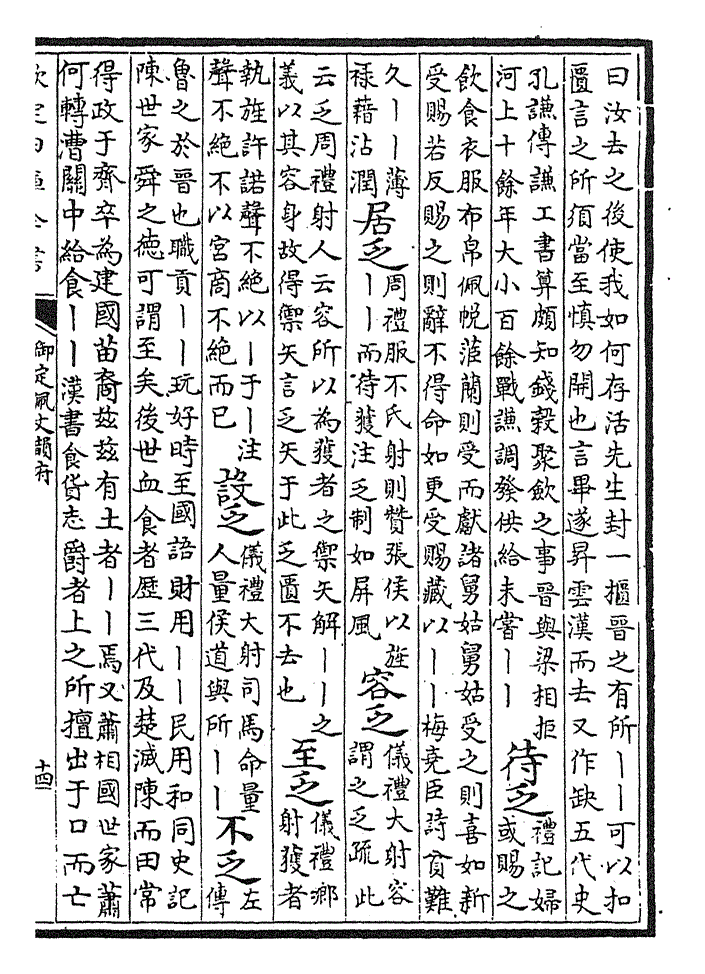 曰汝去之後使我如何存活先生封一摳晉之有所丨丨可以扣
匱言之所須當至慎勿開也言畢遂昇雲漢而去又作缺五代史
孔謙傳謙工書算頗知錢穀聚歛之事晉與梁相拒
河上十餘年大小百餘戰謙調發供給未嘗丨丨
待乏
禮記婦
或賜之
飲食衣服布帛佩帨茝蘭則受而獻諸舅姑舅姑受之則喜如新
受賜若反賜之則辭不得命如更受賜藏以丨丨梅堯臣詩貧難
久丨丨薄
祿藉沾潤
居乏
周禮服不氏射則贊張侯以旌
丨丨而待獲注乏制如屏風
容乏
儀禮大射容
謂之乏疏此
云乏周禮射人云容所以為獲者之禦矢解丨丨之
義以其容身故得禦矢言乏矢于此乏匱不去也
至乏
儀禮鄉
射獲者
執旌許諾聲不絕以丨于丨注
聲不絕不以宮商不絕而已
設乏
儀禮大射司馬命量
人量侯道與所丨丨
不乏
左
傳
魯之於晉也職貢丨丨玩好時至國語財用丨丨民用和同史記
陳世家舜之徳可謂至矣後世血食者歷三代及楚滅陳而田常
得政于齊卒為建國苗裔兹兹有土者丨丨焉又蕭相國世家蕭
何轉漕關中給食丨丨漢書食貨志爵者上之所擅出于口而亡
欽定四庫全書
御定佩文韻府
十四